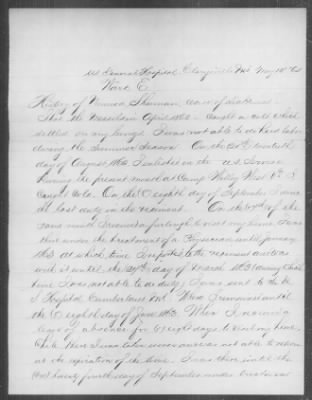 US General Hospital, Clarysville Md May 18th 64
Ward E.
History of
Shot the Measles in April 1862 caught a cold which
settled on my lungs I was not able to do hard labor
during the Summer Season. On the 20th twentieth
day of August 1862 I enlisted in the U.S. Service
the present at Camp Willey West Va I
Caught Cold. On the 8 eighth day of September I done
the last duty in the regiment. On the of the
same month I received a furlough to visit my home I was
there under the treatment of a Physician until January
1863 At which time I reported to the regiment and was
with it until the day of March 1863 (during which
time I was not able to do duty) I was sent to the U.
S Hospital Cumberland Md. Where I remained until
the 8 eighth day of June 1863. When I received
leave of absence for 8 eight days to visit my home,
While there I was taken worse and was not able to return
at the expiration of the time. I was there until the
(24) twenty fourth day of September under treatment